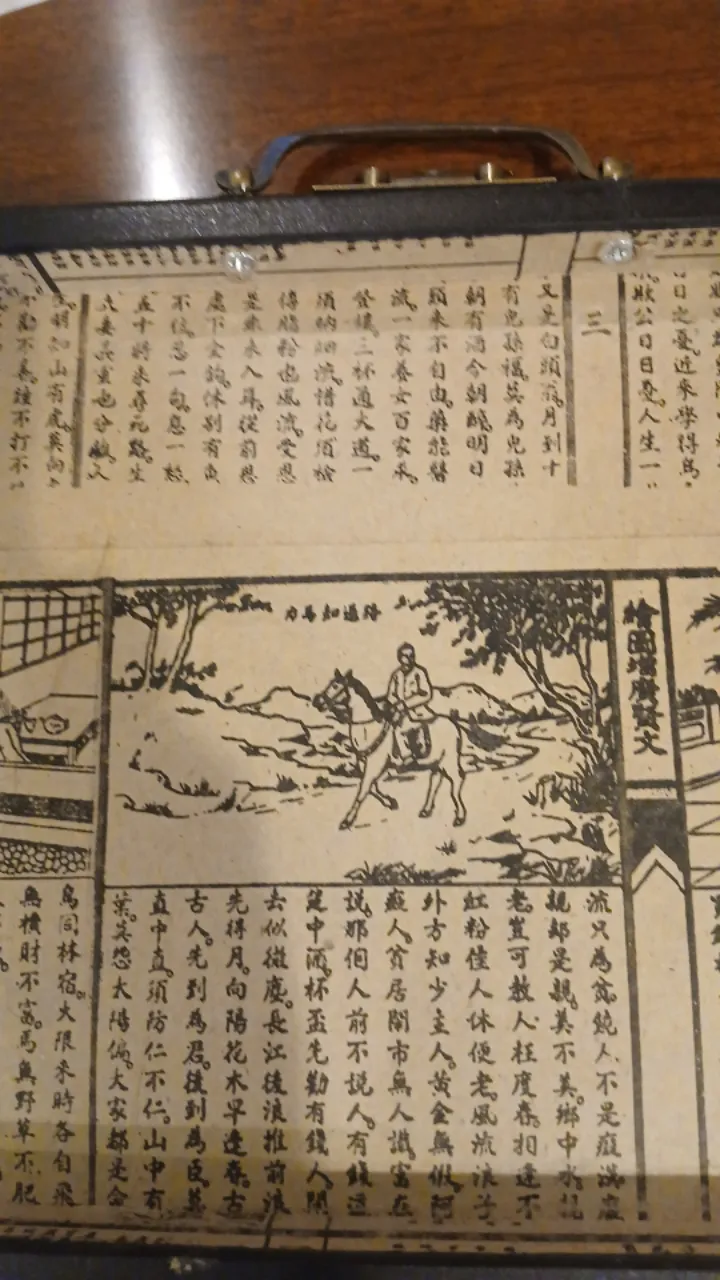 日之憂。近來學得烏
欺公日日憂。人生一
三
又是白頭翁。月到十
有兒孫福。莫為兒孫
朝有酒今朝醉。明日
頭來不自由。藥能醫
流。一家養女百家求。
登樓。三杯通大道。一
須納細流。惜花須檢
得脂粉也風流。受恩
來入耳。從前恩
處下金鉤。休別有魚
不信。忍一句。息一怒
五十將來尋死路。生
明知山有虎。莫向
不打不
繪圖增廣賢文
路遙知馬力
流只為貪饒人。不是癡漢癡
親却是親。美不美。鄉中水。親
老。豈可教人枉度春。相逢不
紅粉佳人休便老。風流浪子
外方知少主人。黃金無假。阿
癡人。貧居鬧市無人識。富在
説。那個人前不説人。有錢道
筵中酒。杯盃先勸有錢人。閙
去似微塵。長江後浪推前浪
先得月。向陽花木早逢春。古
古人。先到為君。後到為臣。莫
直中直。須防仁不仁。山中有
葉。莫怨太陽偏。大家都是命
鳥同林宿。大限來時各自飛
無橫財不富。馬無野草不肥